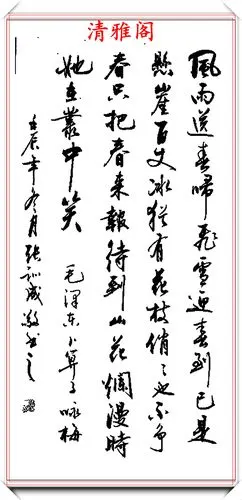 清雅阁
風雨送春歸飛雪迎春到已是
懸崖百丈冰猶有花枝俏〻也不争
春只把春来報待到山花爛漫時
她在叢中笑 毛澤東卜算子咏梅
壬辰年冬月張訓成敬書之